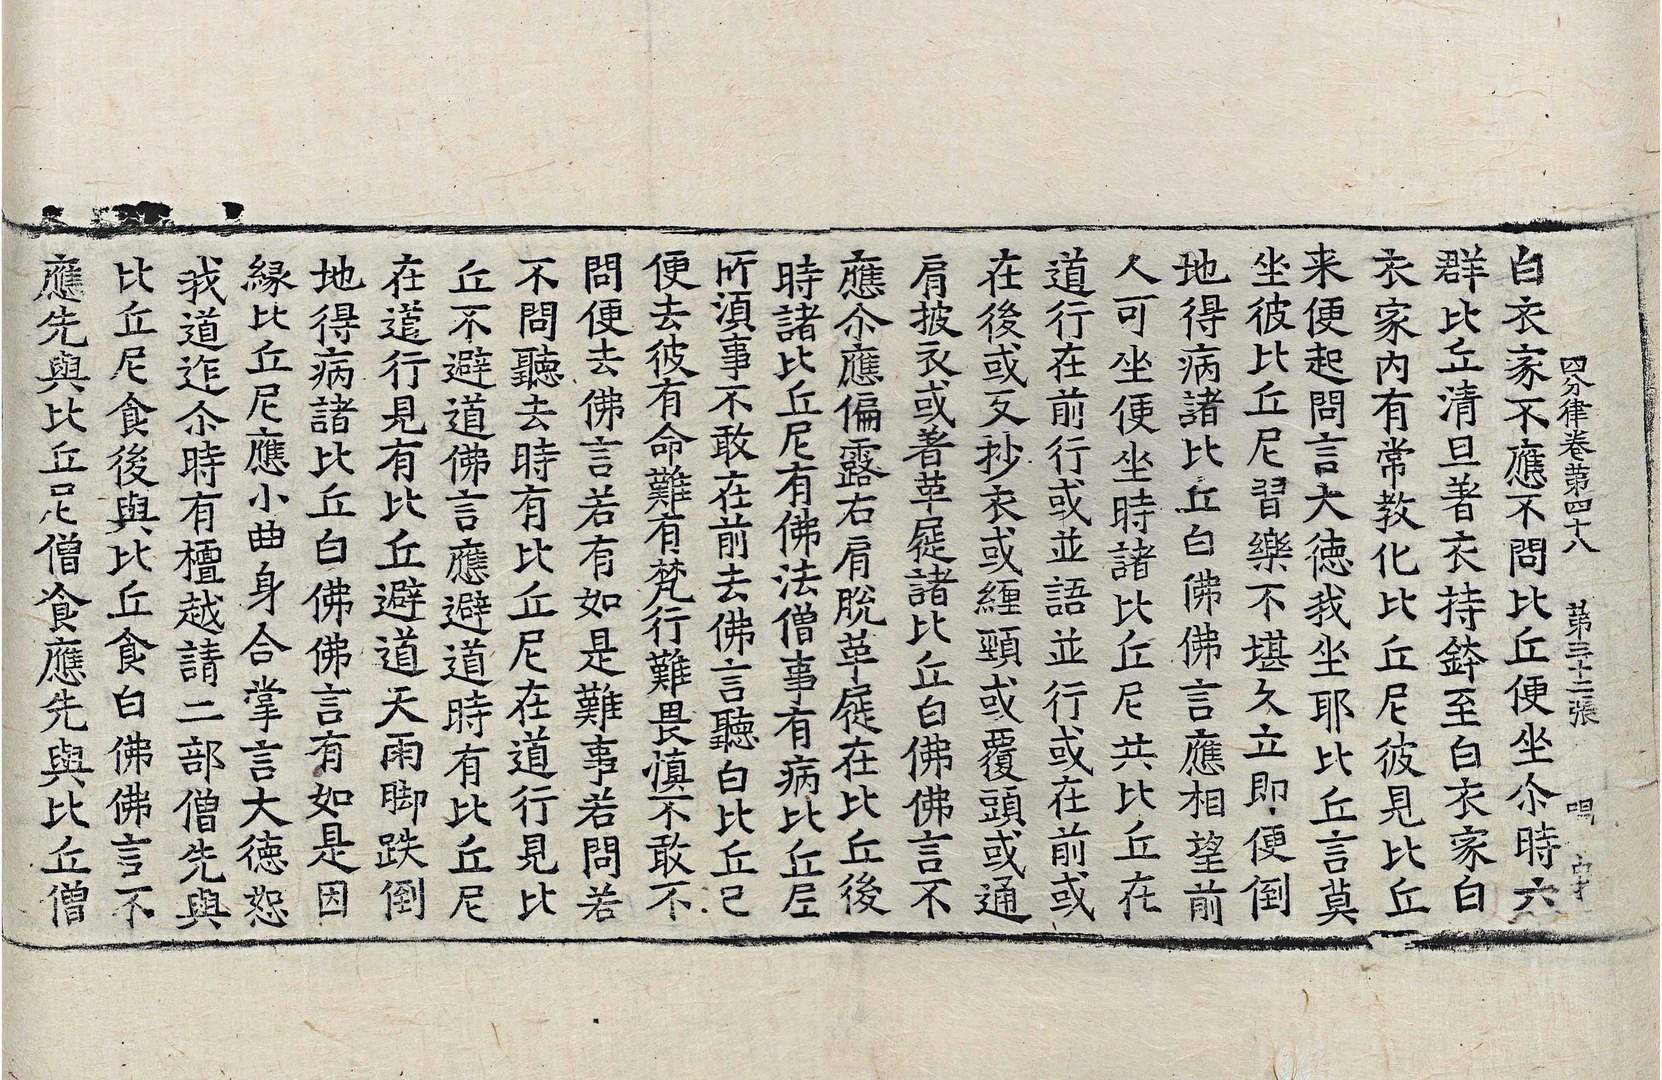 四分律卷苐四十八 第三十二張 唱 字
白衣家不應不問比丘便坐尒時六
群比丘清旦著衣持鉢至白衣家白
衣家內有常教化比丘尼彼見比丘
来便起問言大德我坐耶比丘言莫
坐彼比丘尼習樂不堪久立即便倒
地得病諸比丘白佛佛言應相望前
人可坐便坐時諸比丘尼共比丘在
道行在前行或並語並行或在前或
在後或反抄衣或纏頸或覆頭或通
肩披衣或著革屣諸比丘白佛佛言不
應尒應偏露右肩脫革屣在比丘後
時諸比丘尼有佛法僧事有病比丘尼
所湏事不敢在前去佛言聽白比丘已
便去彼有命難有梵行難畏慎不敢不
問便去佛言若有如是難事若問若
不問聽去時有比丘尼在道行見比
丘不避道佛言應避道時有比丘尼
在道行見有比丘避道天雨脚跌倒
地得病諸比丘白佛佛言有如是因
緣比丘尼應小曲身合掌言大德恕
我道迮尒時有檀越請二部僧先與
比丘尼食後與比丘食白佛佛言不
應先與比丘尼僧食應先與比丘僧